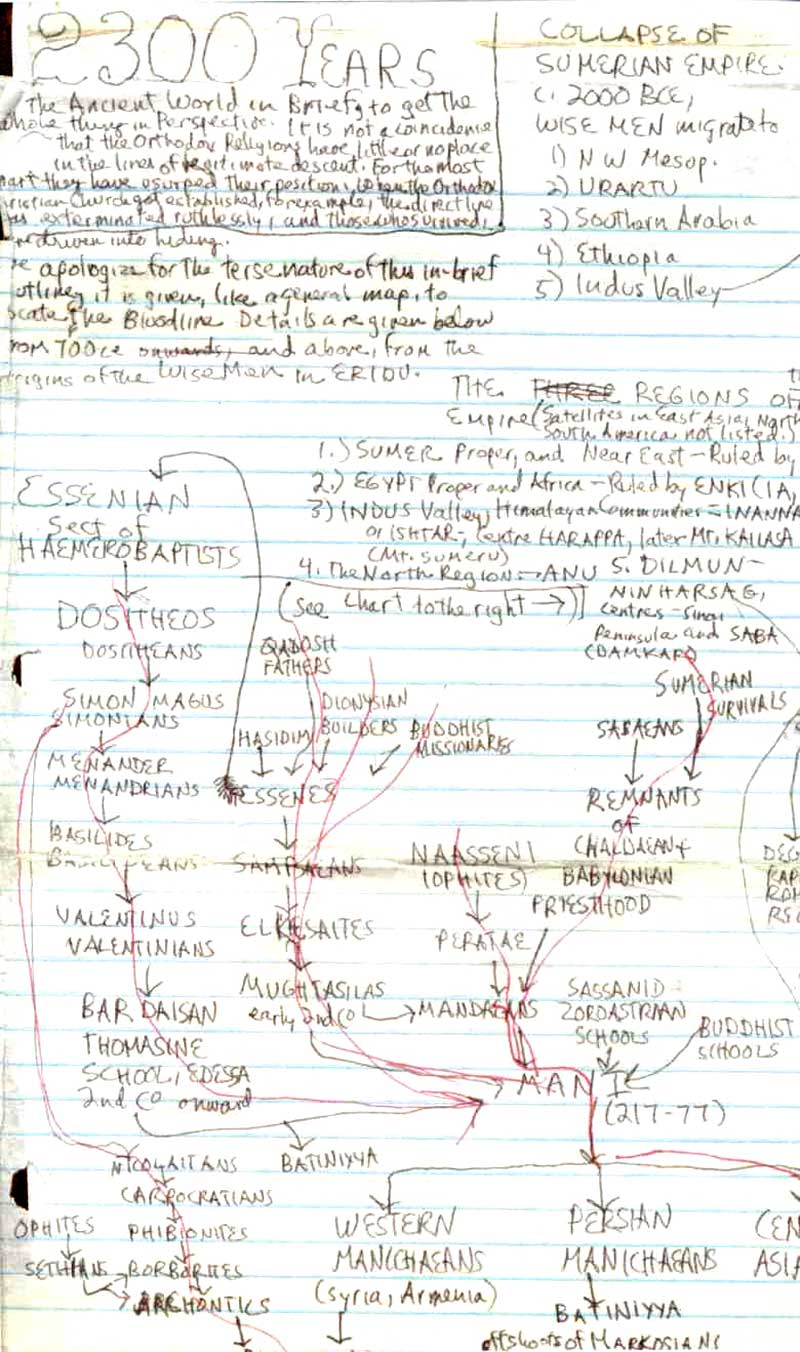 2300 YEARS
The Ancient World in Brief, to get the
whole thing in Perspective. It is not a coincidence
that the Orthodox Religions have little or no place
in the lines of legitimate descent. For the most
part they have usurped their position; when the Orthodox
Christian Church got established, for example, the direct line
was exterminated ruthlessly, and those who survived,
driven into hiding.
We apologize for the terse nature of this in-brief
outline; it is given, like a general map, to
locate the Bloodline. Details are given below
from 700ce onwards, and above, from the
origins of the Wise Men in ERIDU.
COLLAPSE OF
SUMERIAN EMPIRE.
C. 2000 BCE,
WISE MEN migrate to
1) NW Mesop.
2) URARTU
3) Southern Arabia
4) Ethiopia
5) Indus Valley
THE THREE REGIONS OF
Empire (Satellites in East Asia, North
South America not listed.)
1.) SUMER Proper, and Near East - Ruled by
2.) EGYPT Proper and Africa - Ruled by ENKI (IA,
3) INDUS Valley, Himalayan Communities = INANNA
or ISHTAR-, Centre HARAPPA, later Mt. KAILASA
(Mt. Sumeru)
4. The North Region: - ANU
5. DILMUN -
NINHARSAG,
centres - Sinai
Peninsula and SABA
(DAMKAR)
(See Chart to the right →)
ESSENIAN
Sect of
HAEMEROBAPTISTS
DOSITHEOS
DOSITHEANS
SIMON MAGUS
SIMONIANS
MENANDER
MENANDRIANS
BASILIDES
BASILIDEANS
VALENTINUS
VALENTINIANS
BAR DAISAN
THOMASINE
SCHOOL, EDESSA
2nd C onward
QADOSH
FATHERS
DIONYSIAN
BUILDERS
HASIDIM
BUDDHIST
MISSIONARIES
ESSENES
SAMPSAEANS
ELKESAITES
MUGHTASILAS
early 2nd C
SUMERIAN
SURVIVALS
SABAEANS
REMNANTS
OF
CHALDAEAN &
BABYLONIAN
PRIESTHOOD
NAASSENI
(OPHITES)
PERATAE
MANDAEANS
SASSANID
ZOROASTRIAN
SCHOOLS
BUDDHIST
SCHOOLS
MANI
(217-77)
NICOLAITANS
BATINIYYA
CARPOCRATIANS
OPHITES
PHIBIONITES
SETHIANS
BORBORITES
ARCHONTICS
WESTERN
MANICHAEANS
(Syria, Armenia)
PERSIAN
MANICHAEANS
BATINIYYA
offshoots of MARKOSIANS
CEN
ASIA